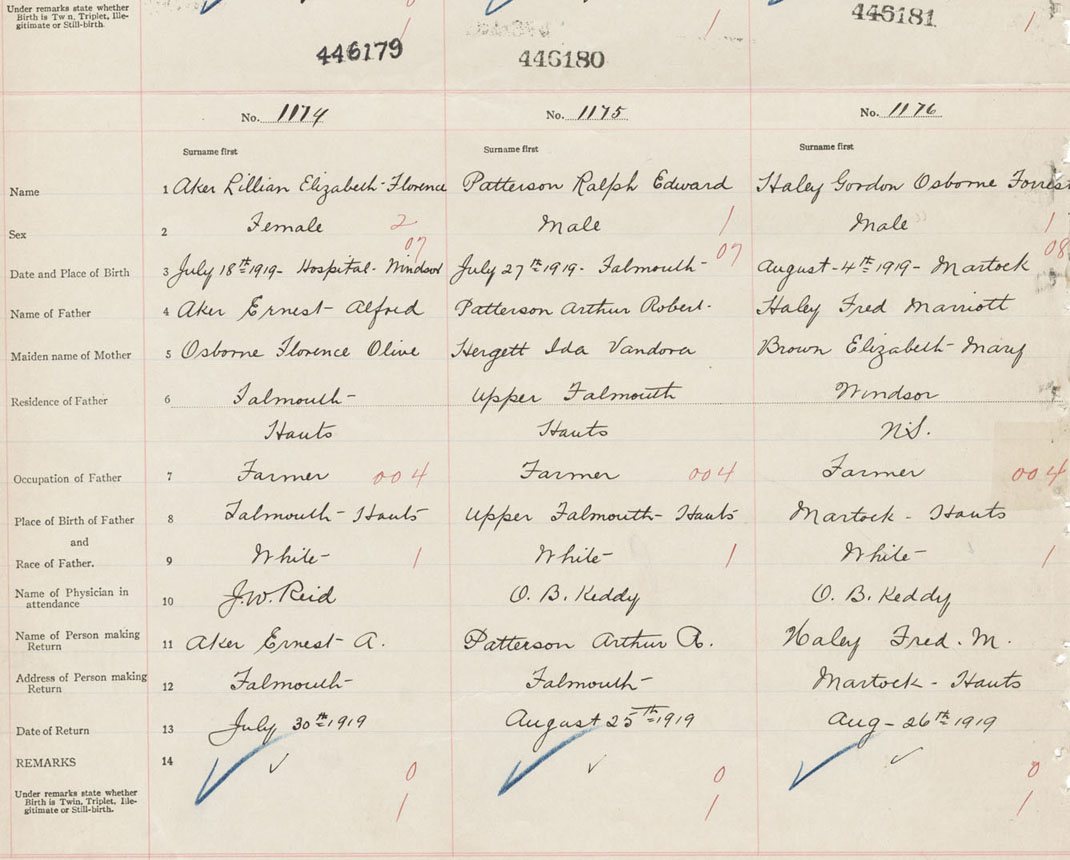 Under remarks state whether
Birth is Twin, Triplet, Ille-
gitimate or Still-birth.
1 1 1
446179 446180 446181
No. 1174 No. 1175 No. 1176
Surname first Surname first Surname first
Name 1 Aker Lillian Elizabeth-Florence Patterson Ralph Edward Haley Gordon Osborne Forrest
Sex 2 Female 2 Male 1 Male 1
07 07 08
Date and Place of Birth 3 July 18th 1919- Hospital- Windsor July 27th 1919- Falmouth- August-4th 1919- Martock
Name of Father 4 Aker Ernest- Alfred Patterson Arthur Robert- Haley Fred Marriott
Maiden name of Mother 5 Osborne Florence Olive Hergett Ida Vandora Brown Elizabeth- Mary
Residence of Father 6 Falmouth- Upper Falmouth Windsor
Hants Hants N.S.
Occupation of Father 7 Farmer 004 Farmer 004 Farmer 004
Place of Birth of Father 8 Falmouth- Hants Upper Falmouth- Hants Martock - Hants
and
Race of Father. 9 White- 1 White- 1 White- 1
Name of Physician in
attendance 10 J.W. Reid O. B. Keddy O. B. Keddy
Name of Person making
Return 11 Aker Ernest- A. Patterson Arthur R. Haley Fred. M.
Address of Person making
Return 12 Falmouth- Falmouth- Martock - Hants
Date of Return 13 July 30th 1919 August 25th 1919 Aug- 26th 1919
REMARKS 14 ✓ ✓ ✓
0 0 0
Under remarks state whether
Birth is Twin, Triplet, Ille-
gitimate or Still-birth.
1 1 1